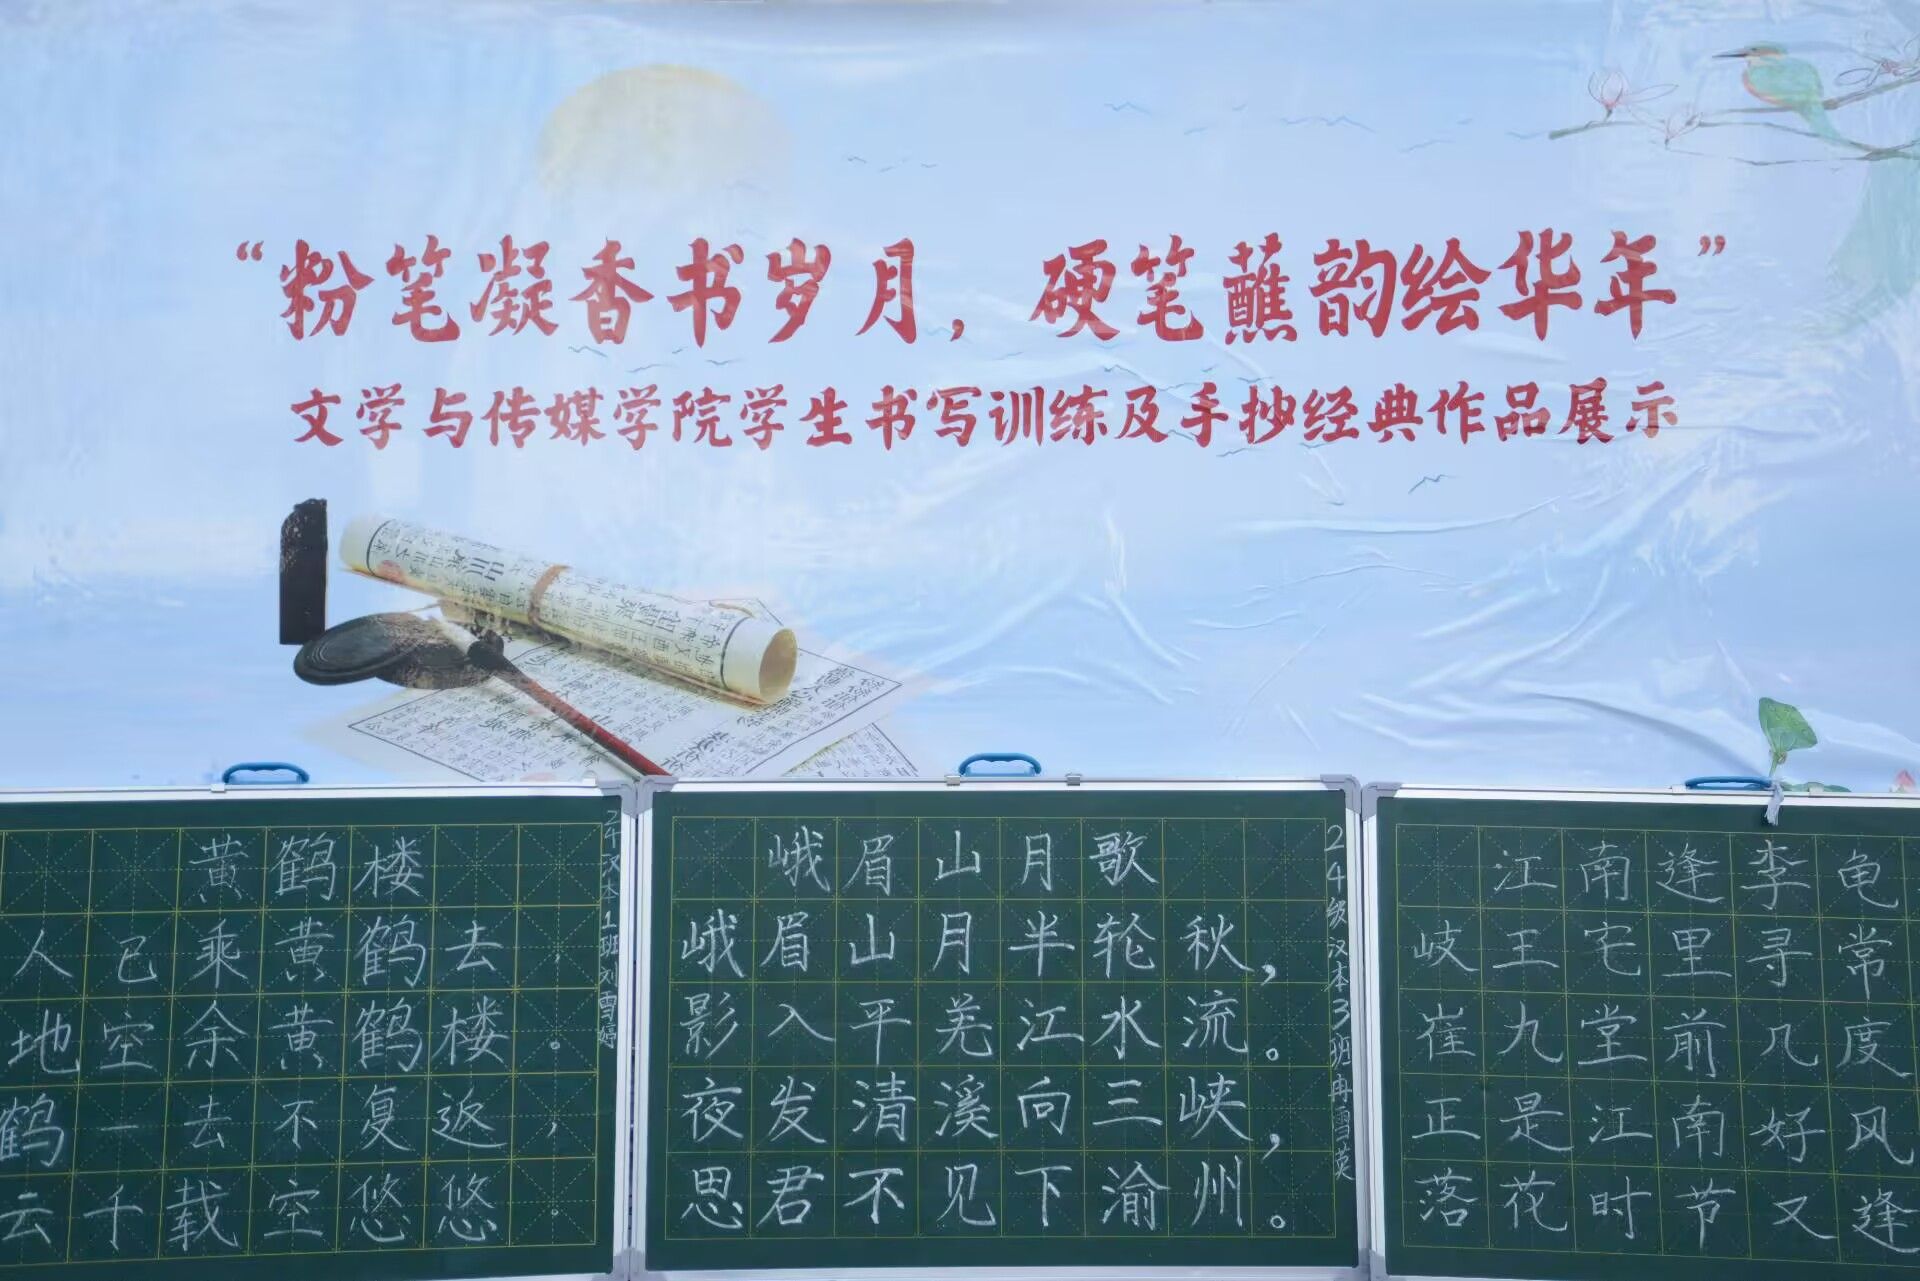 “粉笔凝香书岁月，硬笔蘸韵绘华年”
文学与传媒学院学生书写训练及手抄经典作品展示
黄鹤楼
人已乘黄鹤去，
地空余黄鹤楼。
鹤一去不复返，
云千载空悠悠。
24汉本1班刘雪婷
峨眉山月歌
峨眉山月半轮秋，
影入平羌江水流。
夜发清溪向三峡，
思君不见下渝州。
24级汉本3班冉雪英
江南逢李龟
岐王宅里寻常
崔九堂前几度
正是江南好风
落花时节又逢